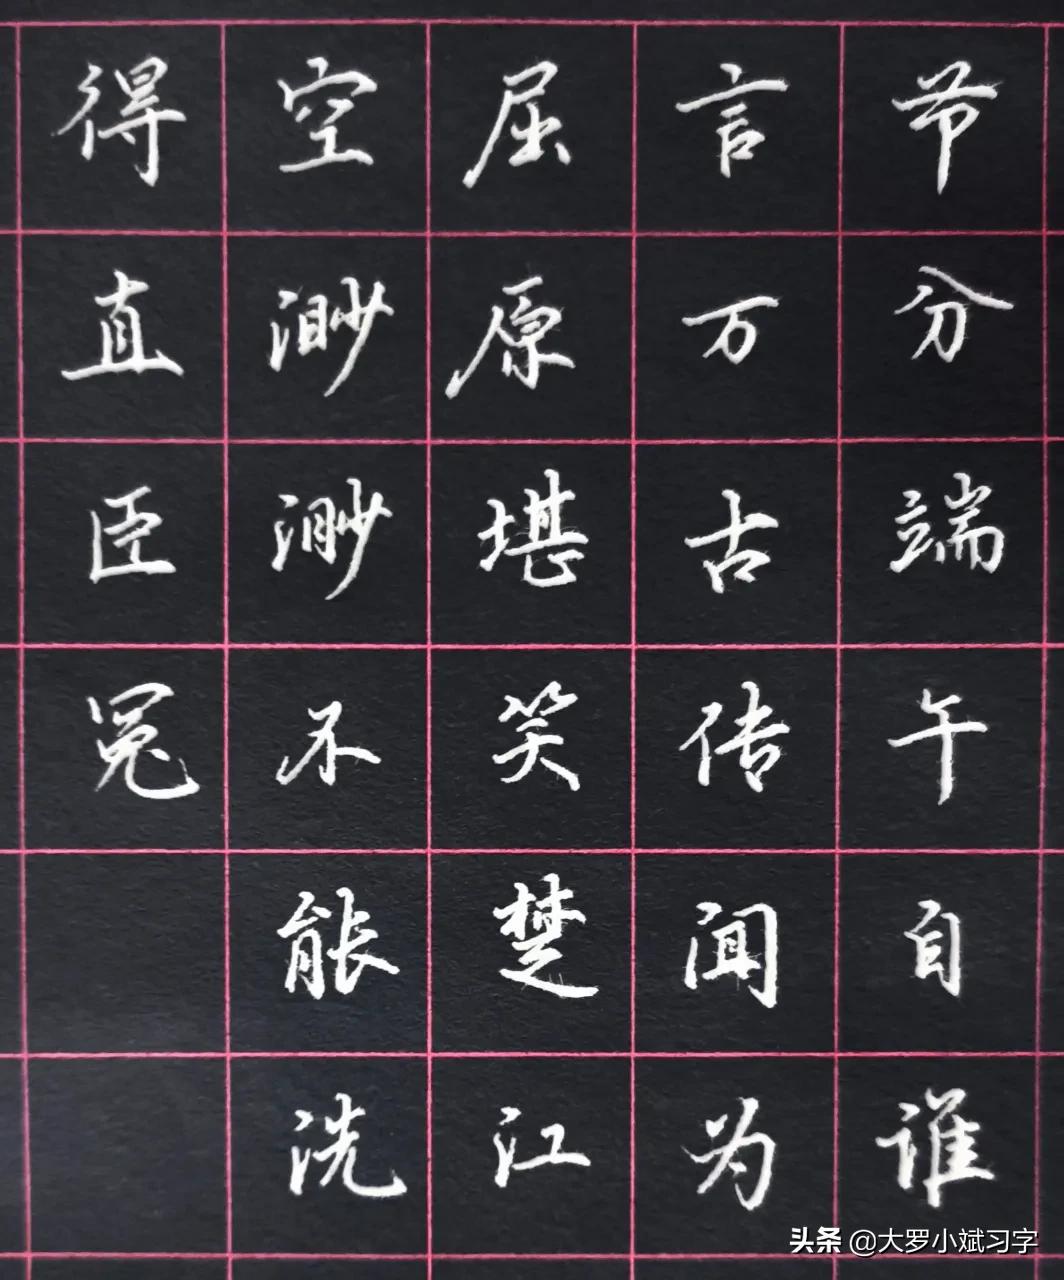 节分端午自谁
言万古传闻为
屈原堪笑楚江
空渺渺不能洗
得直臣冤
头条 @大罗小斌习字